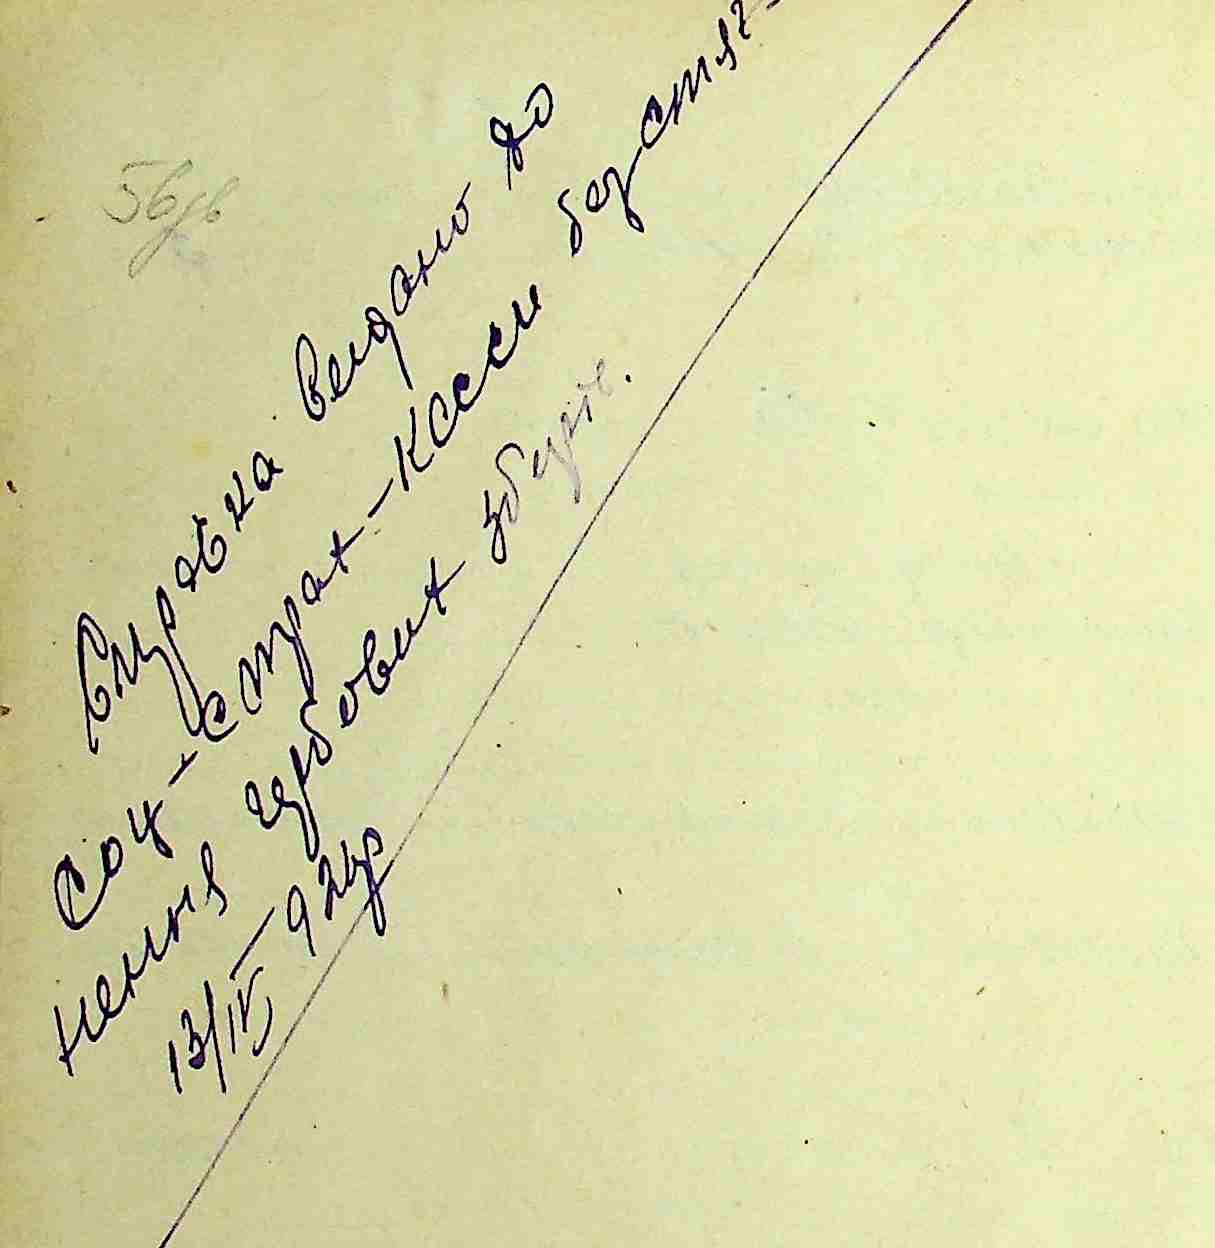 56
Справка видано до
соц-страх-касси без стяг-
нення гербових зборів.
13/IV 92